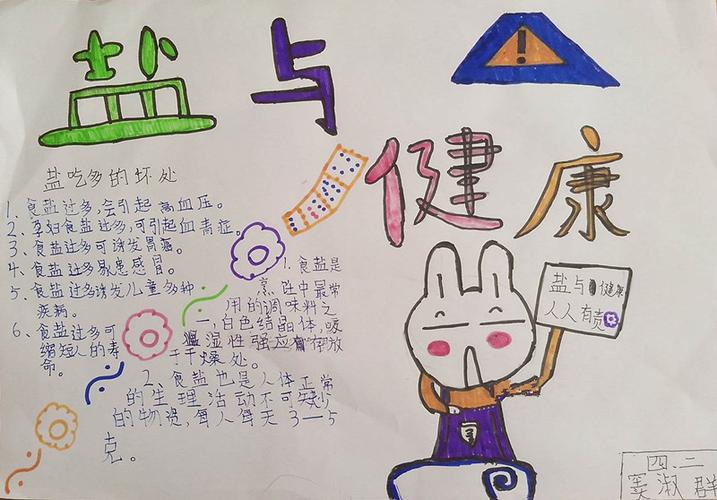 盐与
健康
盐吃多的坏处
1、食盐过多,会引起高血压。
2、孕妇食盐过多,可引起血毒症。
3、食盐过多可诱发胃癌。
4、食盐过多易患感冒。
5、食盐过多诱发儿童多种
疾病。
6、食盐过多可
缩短人的寿
命。
1、食盐是
烹饪中最常
用的调味料之
一,白色结晶体,吸
湿性强应存放
于干燥处。
2、食盐也是人体正常
的生理活动不可缺少
的物资,每人每天3—5
克。
盐与健康
人人有责
四.二
窦淑群